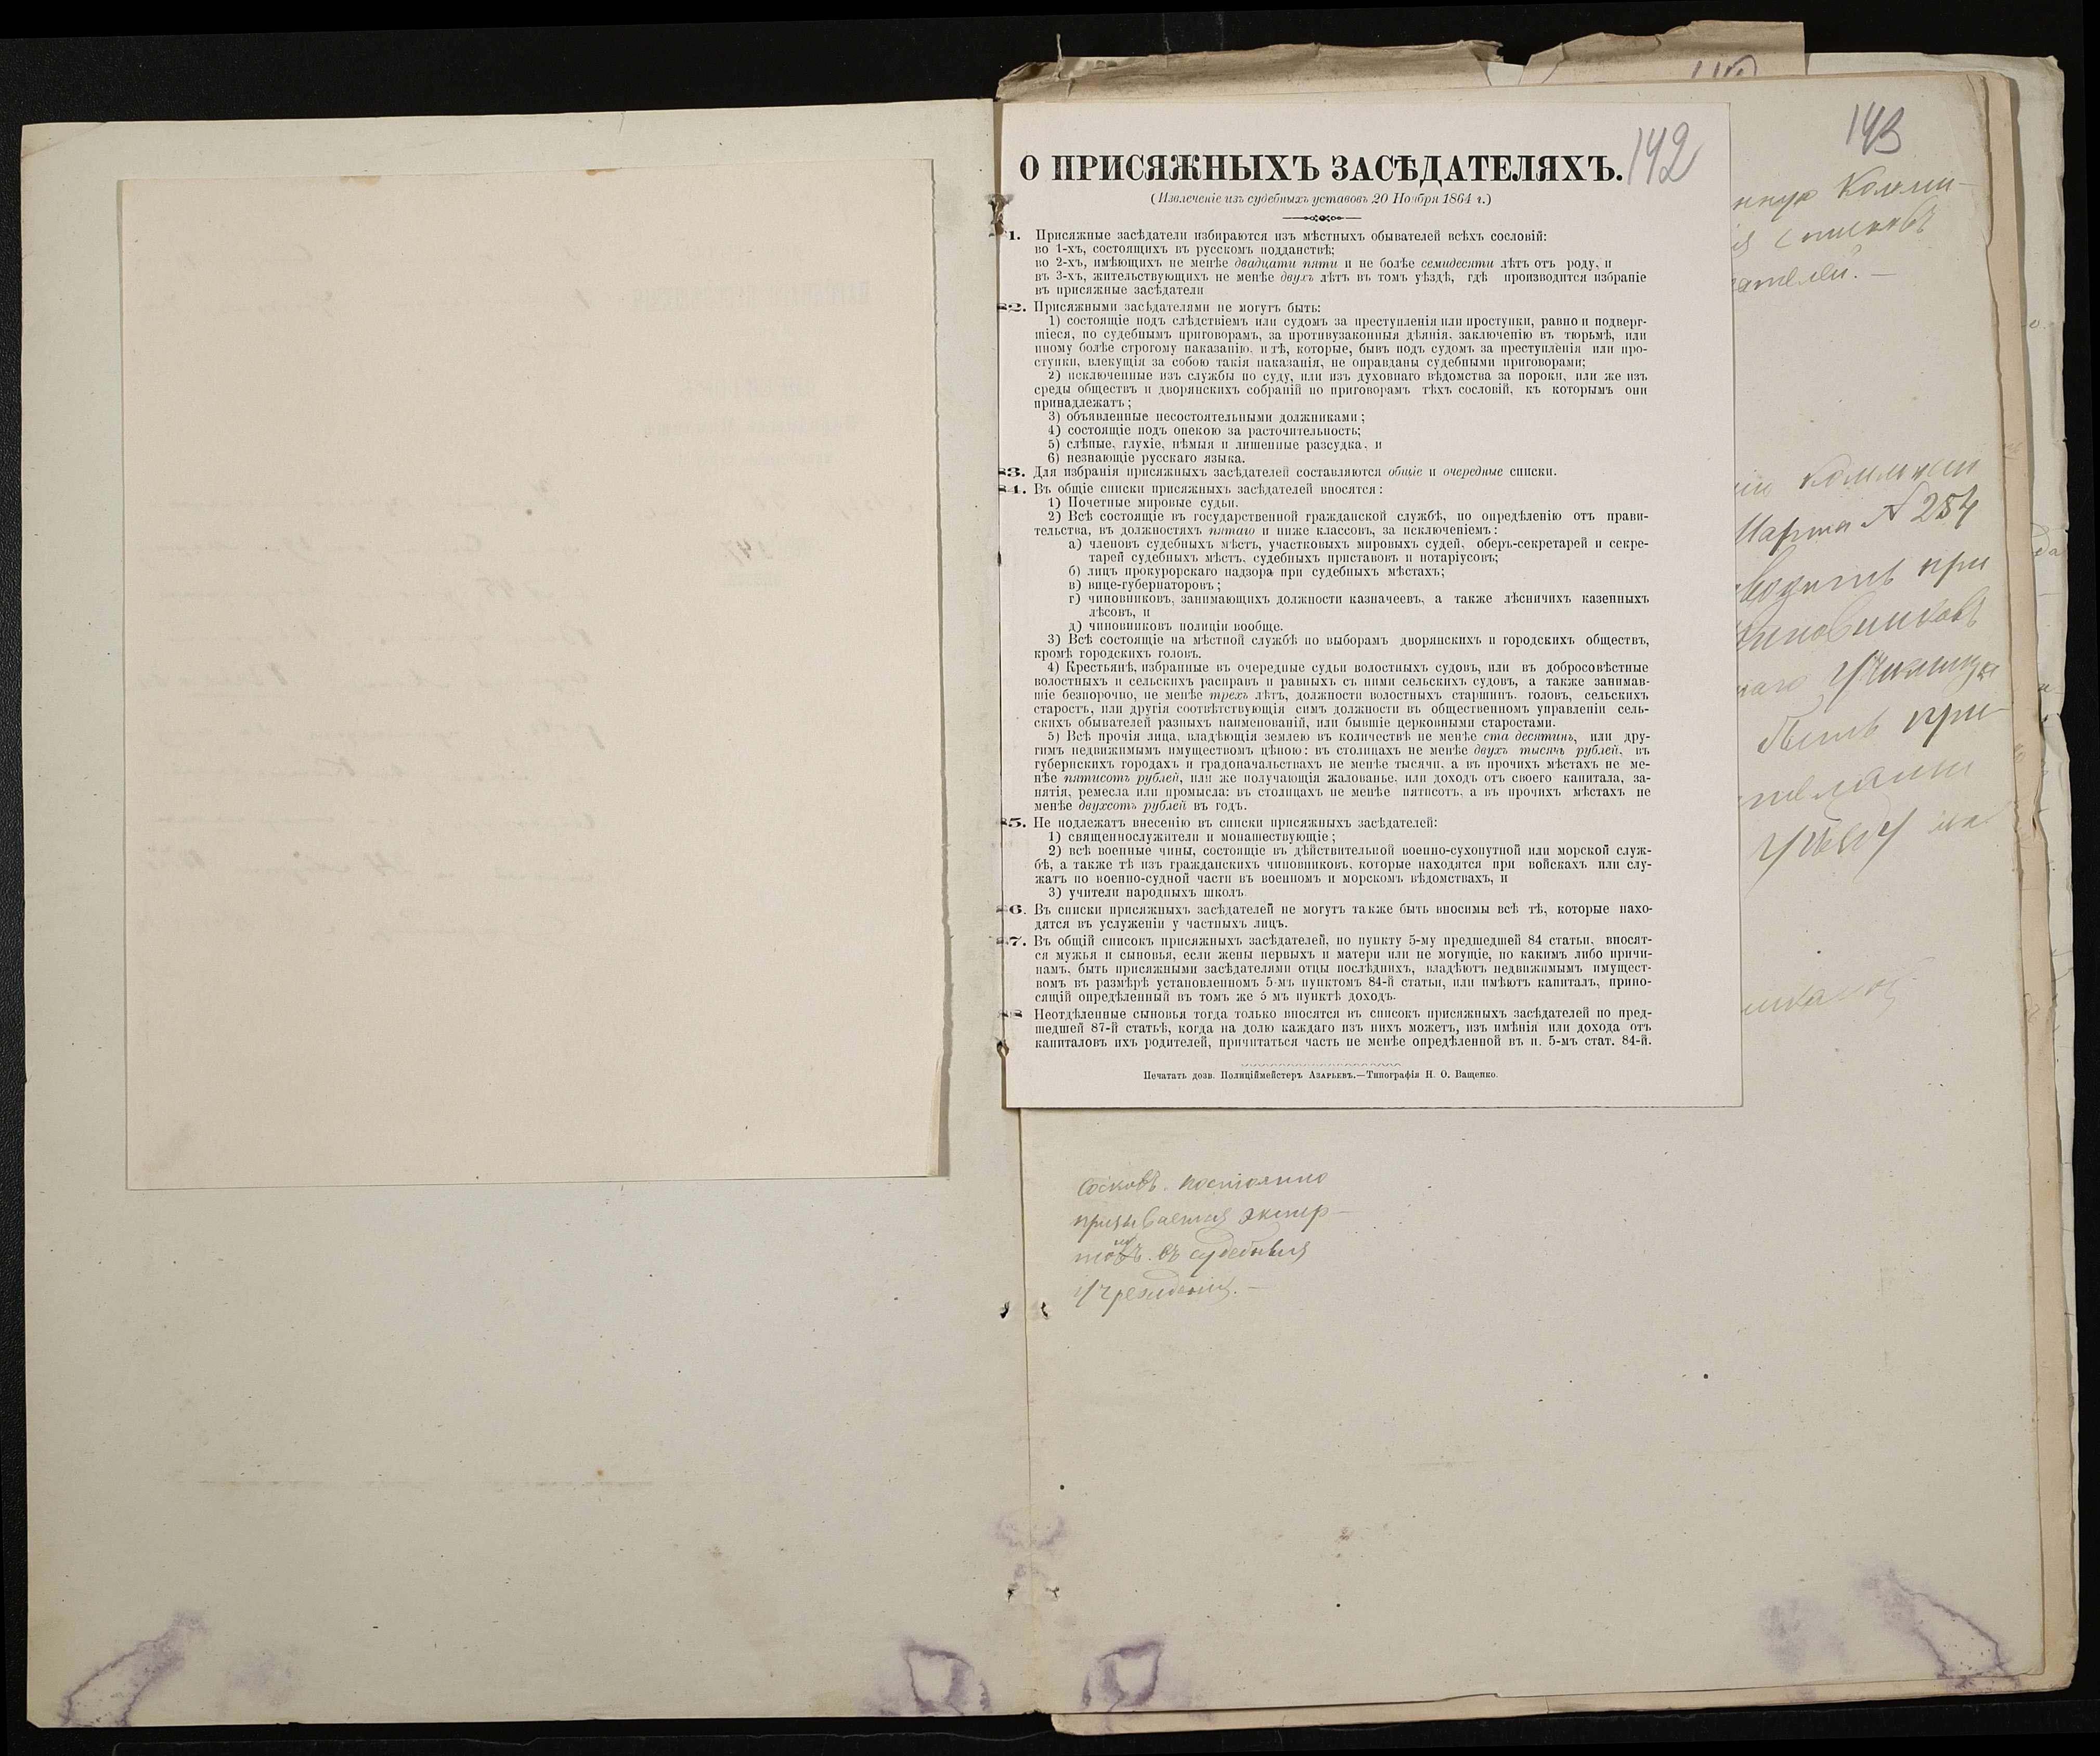 142
143
О ПРИСЯЖНЫХЪ ЗАСѢДАТЕЛЯХЪ.
(Извлеченіе изъ судебныхъ уставовъ 20 Ноября 1864 г.)
1. Присяжные засѣдатели избираются изъ мѣстныхъ обывателей всѣхъ сословій:
во 1-хъ, состоящихъ въ русскомъ подданствѣ;
во 2-хъ, имѣющихъ не менѣе двадцати пяти и не болѣе семидесяти лѣтъ отъ роду, и
въ 3-хъ, жительствующихъ не менѣе двухъ лѣтъ въ томъ уѣздѣ, гдѣ производится избраніе
въ присяжные засѣдатели
82. Присяжными засѣдателями не могутъ быть:
1) состоящіе подъ слѣдствіемъ или судомъ за преступленія или проступки, равно и подверг-
шіеся, по судебнымъ приговорамъ, за противузаконныя дѣянія, заключенію въ тюрьмѣ, или
иному болѣе строгому наказанію, и тѣ, которые, бывъ подъ судомъ за преступленія или про-
ступки, влекущія за собою такія наказанія, не оправданы судебными приговорами;
2) исключенные изъ службы по суду, или изъ духовнаго вѣдомства за пороки, или же изъ
среды обществъ и дворянскихъ собраній по приговорамъ тѣхъ сословій, къ которымъ они
принадлежатъ;
3) объявленные несостоятельными должниками;
4) состоящіе подъ опекою за расточительность;
5) слѣпые, глухіе, нѣмыя и лишенные разсудка, и
6) незнающіе русскаго языка.
83. Для избранія присяжныхъ засѣдателей составляются общіе и очередные списки.
84. Въ общіе списки присяжныхъ засѣдателей вносятся:
1) Почетные мировые судьи.
2) Всѣ состоящіе въ государственной гражданской службѣ, по опредѣленію отъ прави-
тельства, въ должностяхъ пятаго и ниже классовъ, за исключеніемъ:
а) членовъ судебныхъ мѣстъ, участковыхъ мировыхъ судей, оберъ-секретарей и секре-
тарей судебныхъ мѣстъ, судебныхъ приставовъ и нотаріусовъ;
б) лицъ прокурорскаго надзора при судебныхъ мѣстахъ;
в) вице-губернаторовъ;
г) чиновниковъ, занимающихъ должности казначеевъ, а также лѣсничихъ казенныхъ
лѣсовъ, и
д) чиновниковъ полиціи вообще.
3) Всѣ состоящіе на мѣстной службѣ по выборамъ дворянскихъ и городскихъ обществъ,
кромѣ городскихъ головъ.
4) Крестьянѣ, избранные въ очередные судьи волостныхъ судовъ, или въ добросовѣстные
волостныхъ и сельскихъ расправъ и равныхъ съ ними сельскихъ судовъ, а также занимав-
шіе безпорочно, не менѣе трехъ лѣтъ, должности волостныхъ старшинъ, головъ, сельскихъ
старостъ, или другія соотвѣтствующія симъ должности въ общественномъ управленіи сель-
скихъ обывателей разныхъ наименованій, или бывшіе церковными старостами.
5) Всѣ прочія лица, владѣющія землею въ количествѣ не менѣе ста десятинъ, или дру-
гимъ недвижимымъ имуществомъ цѣною: въ столицахъ не менѣе двухъ тысячъ рублей, въ
губернскихъ городахъ и градоначальствахъ не менѣе тысячи, а въ прочихъ мѣстахъ не ме-
нѣе пятисотъ рублей, или же получающія жалованье, или доходъ отъ своего капитала, за-
нятія, ремесла или промысла: въ столицахъ не менѣе пятисотъ, а въ прочихъ мѣстахъ не
менѣе двухсотъ рублей въ годъ.
85. Не подлежатъ внесенію въ списки присяжныхъ засѣдателей:
1) священнослужители и монашествующіе;
2) всѣ военные чины, состоящіе въ дѣйствительной военно-сухопутной или морской служ-
бѣ, а также тѣ изъ гражданскихъ чиновниковъ, которые находятся при войскахъ или слу-
жатъ по военно-судной части въ военномъ и морскомъ вѣдомствахъ, и
3) учители народныхъ школъ.
86. Въ списки присяжныхъ засѣдателей не могутъ также быть вносимы всѣ тѣ, которые нахо-
дятся въ услуженіи у частныхъ лицъ.
87. Въ общій списокъ присяжныхъ засѣдателей, по пункту 5-му предшедшей 84 статьи, вносят-
ся мужья и сыновья, если жены первыхъ и матери или не могущіе, по какимъ либо причи-
намъ, быть присяжными засѣдателями отцы послѣднихъ, владѣютъ недвижимымъ имущест-
вомъ въ размѣрѣ установленномъ 5-мъ пунктомъ 84-й статьи, или имѣютъ капиталъ, прино-
сящій опредѣленный въ томъ же 5 мъ пунктѣ доходъ.
88 Неотдѣленные сыновья тогда только вносятся въ списокъ присяжныхъ засѣдателей по пред-
шедшей 87-й статьѣ, когда на долю каждаго изъ нихъ можетъ, изъ имѣнія или дохода отъ
капиталовъ ихъ родителей, причитаться часть не менѣе опредѣленной въ п. 5-мъ стат. 84-й.
Печатать дозв. Полиціймейстеръ Азарьевъ.—Типографія Н. О. Ващенко.
нную Комми-
списковъ
ателей. —
Коммиссіи
Марта № 284
водить при
Чиновниковъ
наго Училища
быть при-
ателями
уѣзду
Сосковъ. постоянно
призывается экспер-
томъ въ судебныя
учрежденія. —